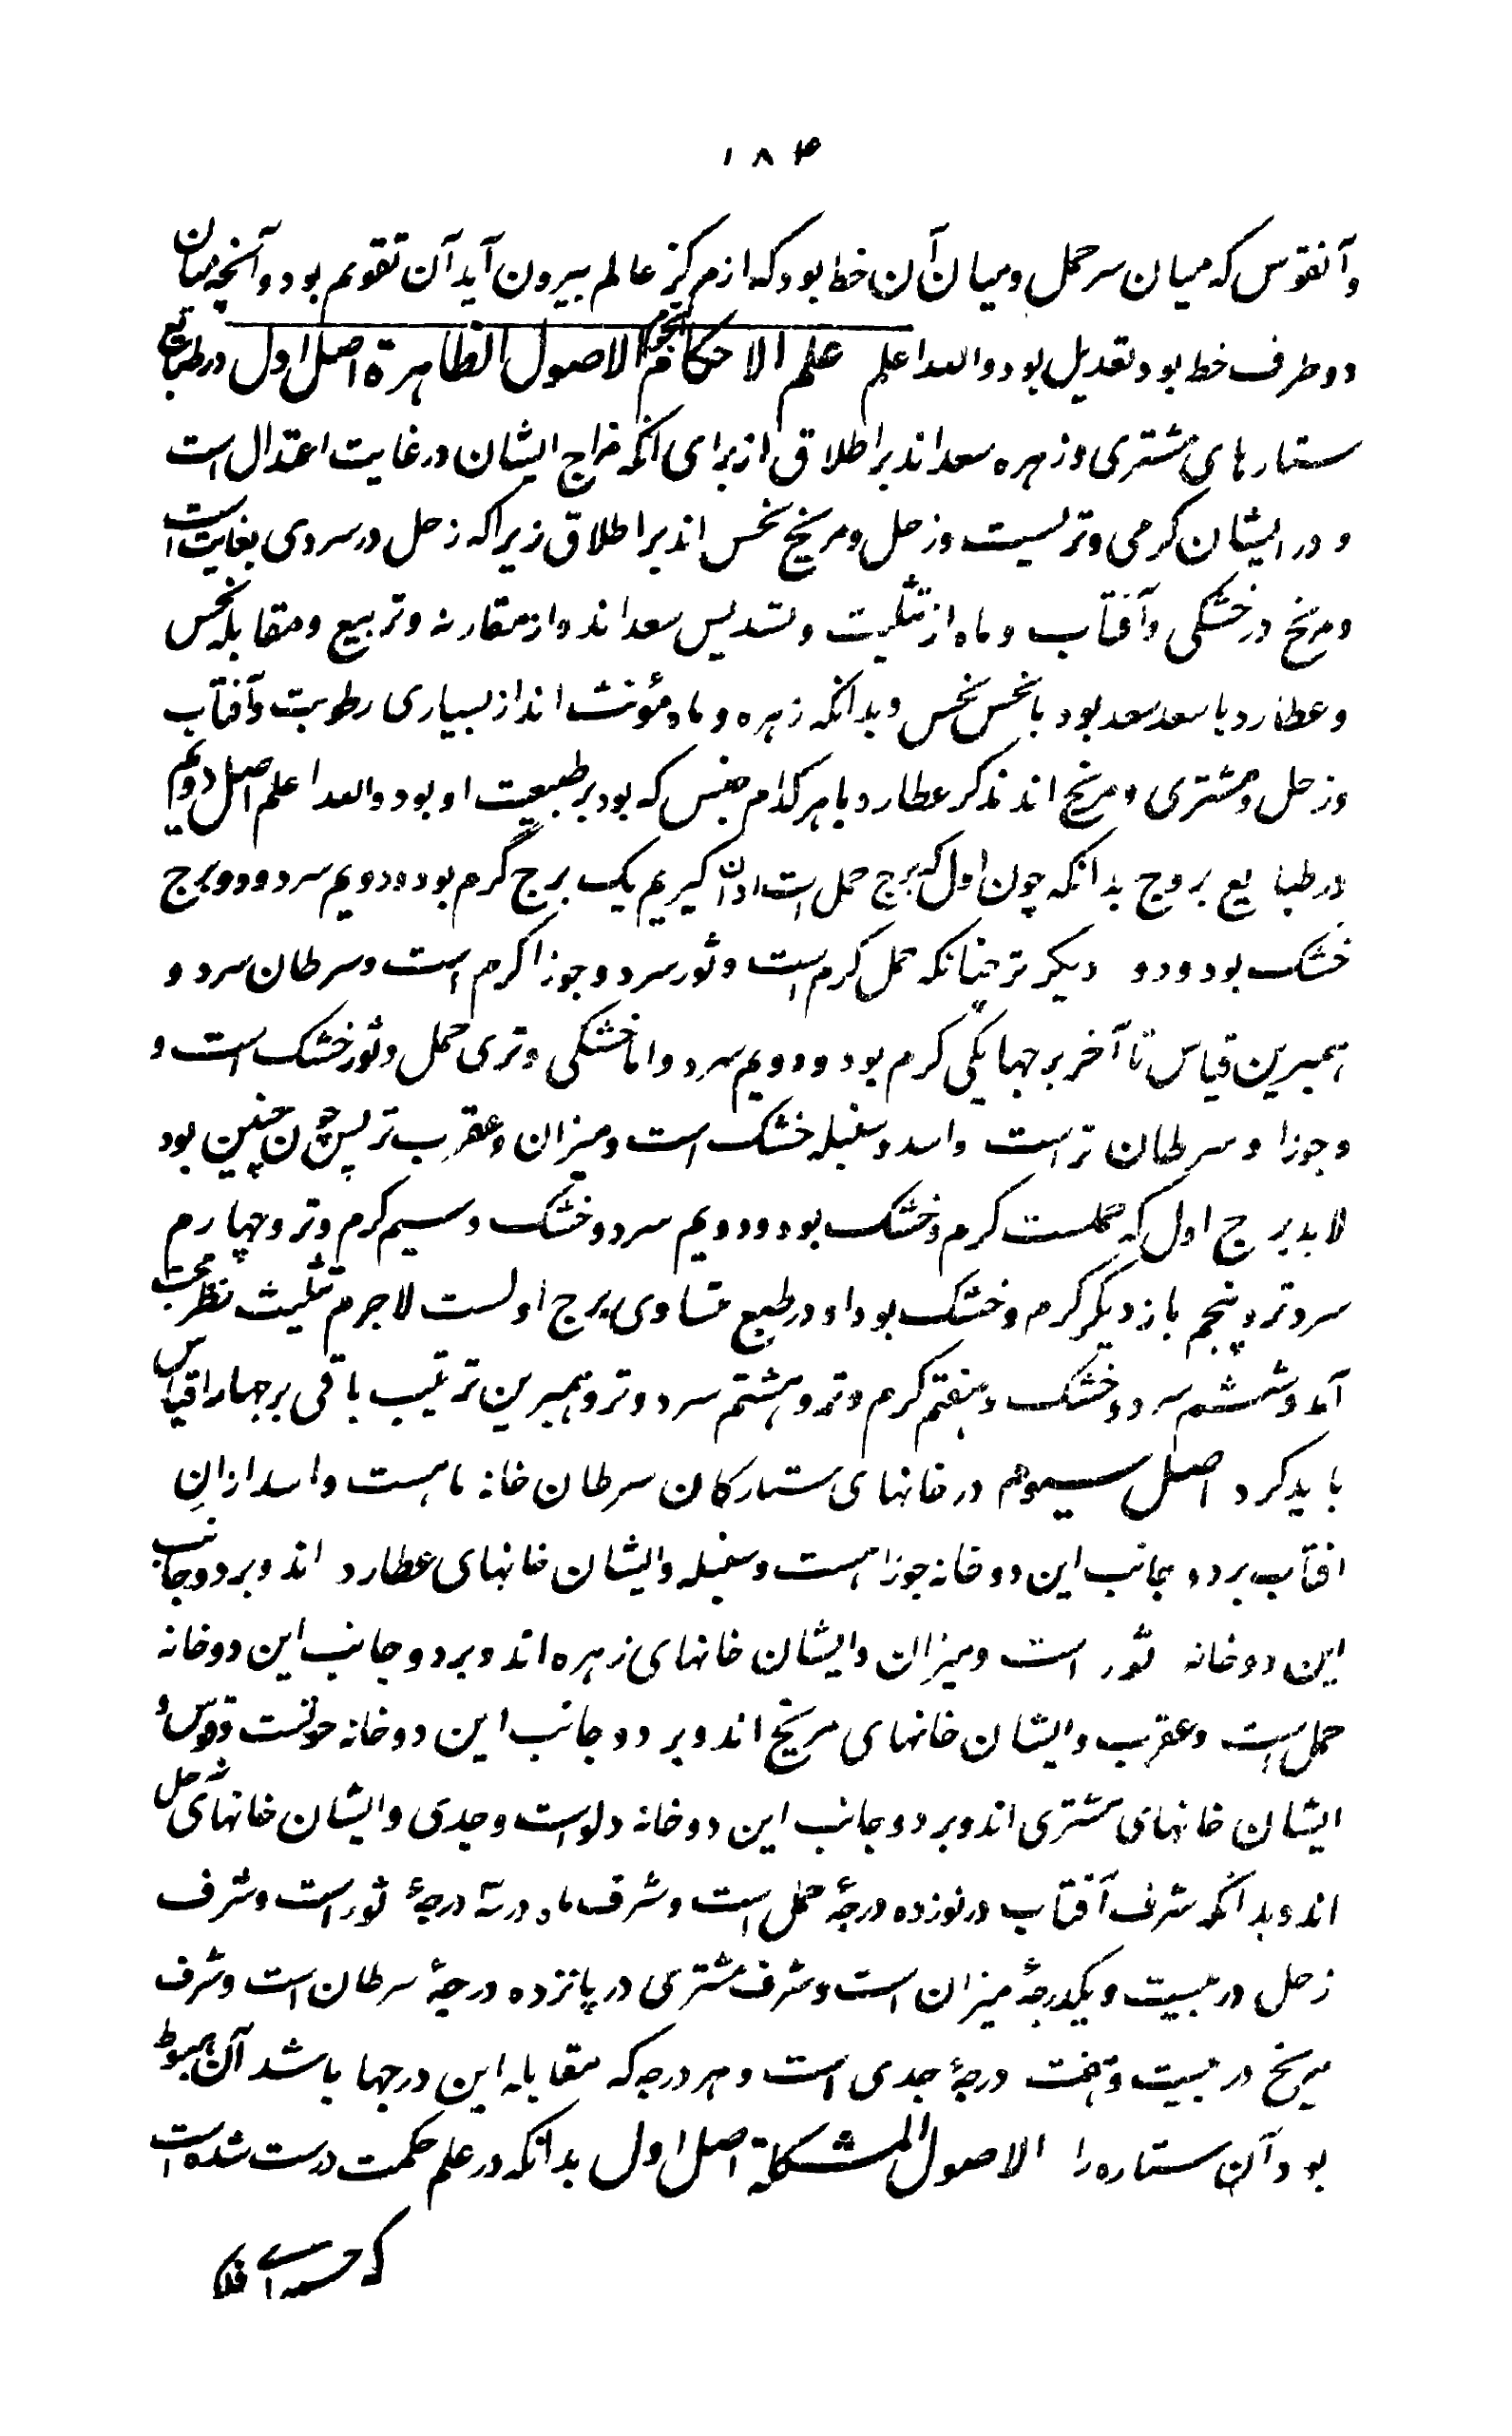 ۱۸۴
وآنقوس که میان سر حمل ومیان آن خط بود که از مرکز عالم بیرون آید آن تقویم بود وآنچه میان
دو طرف خط بود تعدیل بود والله اعلم علم الاحکام النجوم الاصول الظاهرة اصل اول در طبایع
ستارهای مشتری وزهره سعد اند بر اطلاق از برای آنکه مزاج ایشان در غایت اعتدال است
و در ایشان کرمی وتریست وزحل ومریخ نحس اند بر اطلاق زیراکه زحل در سردی بغایت است
ومریخ در خشکی وآفتاب وماه از تثلیث وتسدیس سعد اند واز مقارنه وتربیع ومقابله نحس
وعطارد با سعد سعد بود با نحس نحس وبدانکه زهره وماه مؤنث اند از بسیاری رطوبت وآفتاب
وزحل ومشتری ومریخ اند مذکر عطارد با هر کدام جنس که بود بر طبیعت او بود والله اعلم اصل دویم
در طبایع بروج بدانکه چون اول که برج حمل است ازان کیریم یک برج گرم بود ودویم سرد ودو برج
خشک بود ودو دیکر تر چنانکه حمل کرم است وثور سرد وجوزا کرم است وسرطان سرد و
همبرین قیاس تا آخر برجها یکی کرم بود ودویم سرد واما خشکی وتری حمل وثور خشک است و
وجوزا وسرطان تر است واسد وسنبله خشک است ومیزان وعقرب تر پس چون چنین بود
لابد برج اول که حملست کرم وخشک بود ودویم سرد وخشک وسیم کرم وتر وچهارم
سرد وتر وپنجم باز دیگر کرم وخشک بود واو در طبع مساوی برج اولست لاجرم تثلیث نظر محبت
آمد وششم سرد وخشک وهفتم کرم وتر وهشتم سرد وتر وهمبرین ترتیب باقی برجها را قیاس
باید کرد اصل سیوم در خانهای ستارکان سرطان خانه ماهست واسد ازان
افتاب بر دو جانب این دو خانه جوزا هست وسنبله وایشان خانهای عطارد اند وبر دو جانب
این دو خانه ثور است ومیزان وایشان خانهای زهره اند وبر دو جانب این دو خانه
حمل است وعقرب وایشان خانهای مریخ اند وبر دو جانب این دو خانه حوتست وقوس و
ایشان خانهای مشتری اند وبر دو جانب این دو خانه دلو است وجدی وایشان خانهای زحل
اند وبدانکه شرف آفتاب در نوزده درجۀ حمل است وشرف ماه در سه درجۀ ثور است وشرف
زحل در بیست ویکدرجۀ میزان است وشرف مشتری در پانزده درجۀ سرطان است وشرف
مریخ در بیست وهفت درجۀ جدی است وهر درجه که مقابله این درجها باشد آن هبوط
بود آن ستاره را الاصول المشکلة اصل اول بدانکه در علم حکمت درست شده است